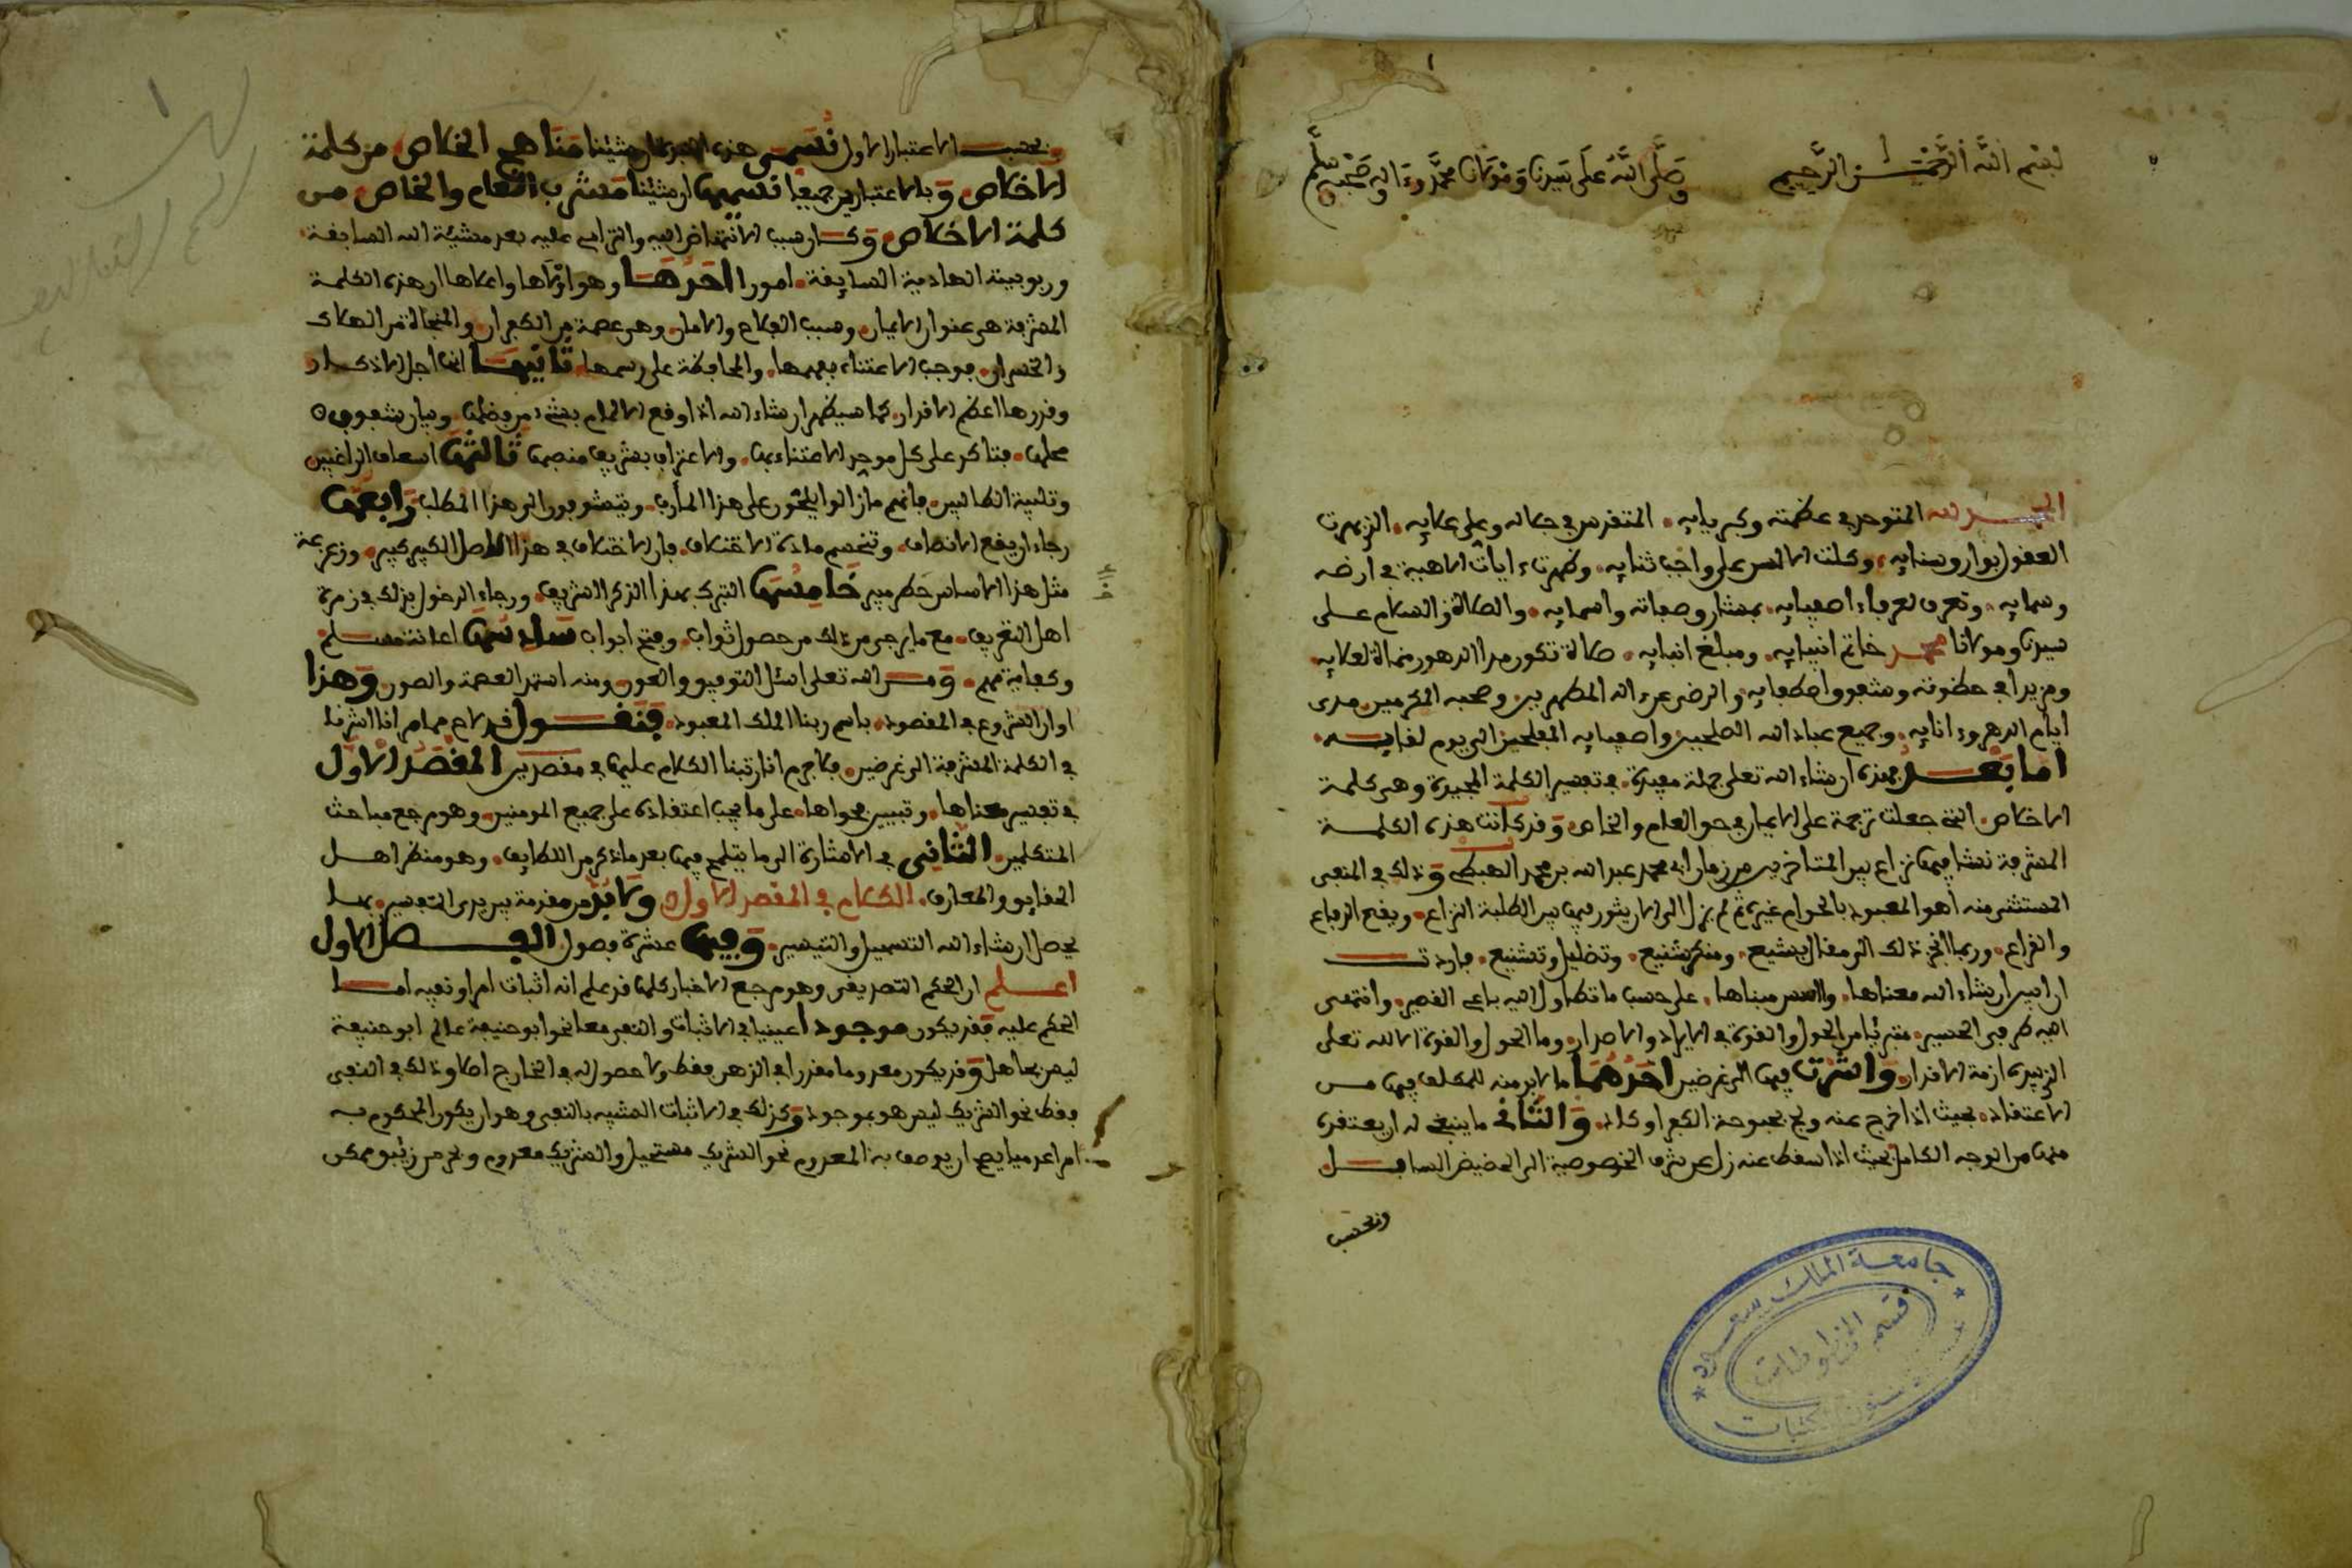 بسم الله الرحمن الرحيم وصلى الله على سيدنا ومولانا محمد وءاله وصحبه وسلم
الحمد لله المتوحد في عظمته وكبريايه المتقدس في جماله وعلى علايه الذي بهرت
العقول بوارق سنايه وكلت الالسن على واجب ثنايه وظهرت ءايات الاهية في ارضه
وسمايه وتعرف لعرفاء اصفيايه بمشار وصفاته واسمايه والصلاة والسلام على
سيدنا ومولانا محمد خاتم انبيايه ومبلغ انبايه صلاة تكون مدا الدهور منماة لعلايه
ومزيدا في حظوته وشفوف اصطفايه والرضى عن ءاله المطهرين وصحبه المكرمين مدى
ايام الدهر وءانايه وجميع عباد الله الصلحين واصفيايه المفلحين الى يوم لقايه
اما بعد فهذه ان شاء الله تعلى جملة مفيدة في تفسير الكلمة المجيدة وهي كلمة
الاخلاص التي جعلت ترجمة على الايمان في حق العام والخاص وقد كانت هذه الكلمة
المشرفة نشا فيها نزاع بين المتاخرين من زمان ابي محمد عبد الله بن محمد الهبطي وذلك في المنفى
المستثنى منه اهو المعبود بالحق ام غيره ثم لم يزل الى الان يثور فيها بين الطلبة النزاع ويقع الدفاع
والقراع وربما انجر ذلك الى مقال بشيع ومنكر شنيع وتضليل وتشنيع فاردت
ان ابين ان شاء الله معناها واسس مبناها على حسب ما تطاول اليه باعي القصير وانتهى
اليه طرفي الحسير متبريا من الحول والقوة في الايراد والاصدار وما الحول والقوة الا لله تعلى
الذي بيده ازمة الاقدار واشرت فيها الى غرضين احدهما ما لا بد منه للمكلف فيها من
الاعتقاد بحيث اذا خرج عنه ولج بحبوحة الكفر او كاد والثاني ما ينبغي له ان يعتقده
منها من الوجه الكامل بحيث اذا سقط عنه زل عن شرف الخصوصية الى الحضيض السافل
وبحسب
جامعة الملك سعود
قسم المخطوطات
شئون المكتبات
وبحسب الاعتبار الاول نسمي هذه ان شئنا مناهج الخلاص من كلمة
الاخلاص وبالاعتبارين جميعا نسميها ان شئنا مشرب العام والخاص من
كلمة الاخلاص وكان سبب الانتهاض اليه والترامي عليه بعد مشيئة الله السابقة
وربوبيته الهادية السايقة امورا احدها وهو اولاها واعلاها ان هذه الكلمة
المشرفة هي عنوان الايمان وسبب الفلاح والامان وهي عصمة من الكفران والمنجاة من الهلاك
والخسران فوجب الاعتناء بفهمها والمحافظة على رسمها ثانيها انها اجل الاذكار
وقدرها اعظم الاقدار كما سيظهر ان شاء الله اذا وقع الالمام بشيء من فضلها وبيان شفوف
محلها فتاكد على كل موحد الاعتناء بها والاعتراف بشريف منصبها ثالثها اسعاف الراغبين
وتلبية الطالبين فانهم ما زالوا يلحون على هذا المارب ويتشوفون الى هذا المطلب رابعها
رجاء ان يقع الانصاف وتنحسم مادة الاختلاف فان الاختلاف في هذا الاصل الكبير كبير وزعزعة
مثل هذا الاساس خطر مبير خامسها التبرك بهذا الذكر الشريف ورجاء الدخول بذلك في زمرة
اهل التعريف مع ما يرجى من ذلك من حصول ثواب وفتح ابواب سادسها اعانة مسلم
وكفاية مهم ومن الله تعلى اسئل التوفيق والعون ومنه استمد العصمة والصون وهذا
اوان الشروع في المقصود باسم ربنا الملك المعبود فنقول قد لاح مما مر انا اشرنا
في الكلمة المشرفة الى غرضين فلا جرم انا رتبنا الكلام عليها في مقصدين المقصد الاول
في تفسير معناها وتبيين فحواها على ما يجب اعتقاده على جميع المومنين وهو مرجع مباحث
المتكلمين الثاني في الاشارة الى ما يتلمح فيها بعد ما ذكر من اللطايف وهو منظر اهل
الحقايق والمعارف الكلام في المقصد الاول ولا بد من مقدمة بين يدي التفسير بها
يحصل ان شاء الله التسهيل والتيسير وفيها عشرة فصول الفصل الاول
اعلم ان الحكم التصديقي وهو مرجع الاخبار كلها قد علم انه اثبات امر او نفيه اما
الحكم عليه فقد يكون موجودا عينيا في الاثبات والنفي معا نحو ابو حنيفة عالم ابو حنيفة
ليس بجاهل وقد يكون معدوما مقدرا في الذهن فقط ولا حصول له في الخارج اصلا وذلك في النفي
فقط نحو الشريك ليس هو بموجود وكذلك في الاثبات الشبيه بالنفي وهو ان يكون المحكوم به
امرا عدميا يصح ان يوصف به المعدوم نحو الشريك مستحيل والشريك معدوم وبحر من زيبق ممكن